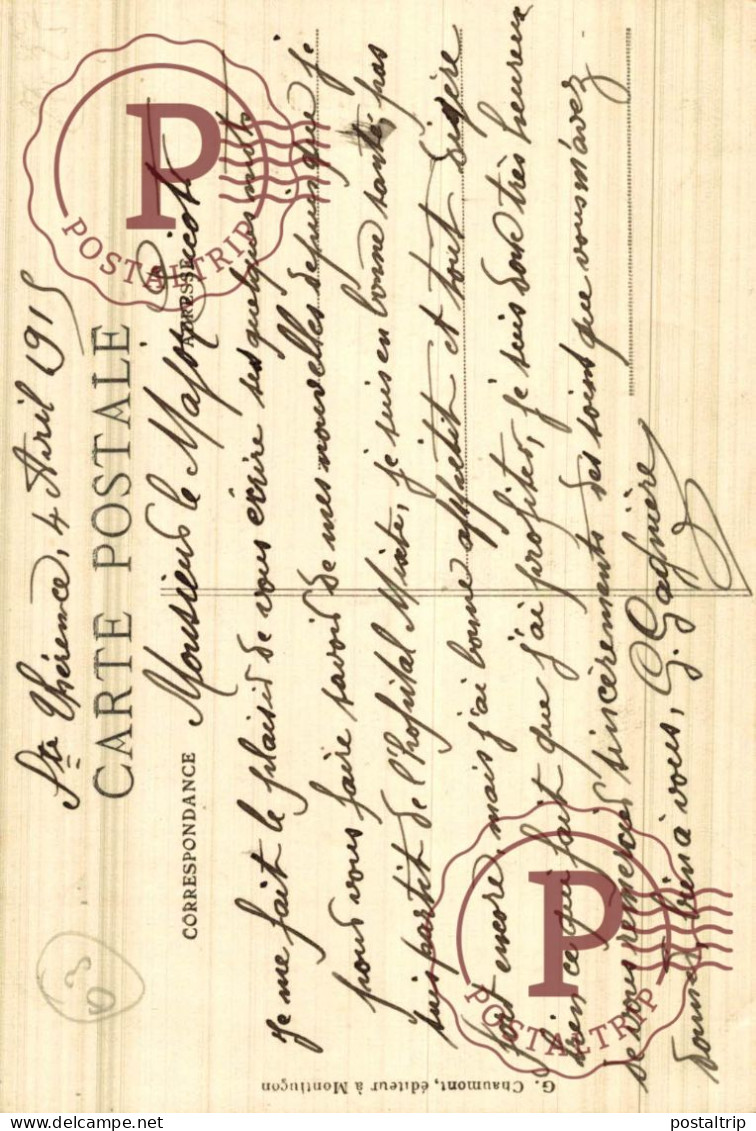 Ste Thérence, 4 Avril 1915
CARTE POSTALE
CORRESPONDANCE
ADRESSE
Monsieur le Major
Je me fait le plaisir de vous écrire ses quelques mots
pour vous faire savoir de mes nouvelles depuis que je
suis partit de l'hopital Mixte, je suis en bonne santé, pas
fort encore, mais j'ai bonne appétit et tout digère
bien ce qui fait que j'ai profiter, je suis donc très heureux
de vous remercier sincèrements des soins que vous m'avez
donner, bien à vous, G. Gagnière
G. Chaumont, éditeur à Montluçon
P
POSTALTRIP
P
POSTALTRIP
www.delcampe.net
postaltrip